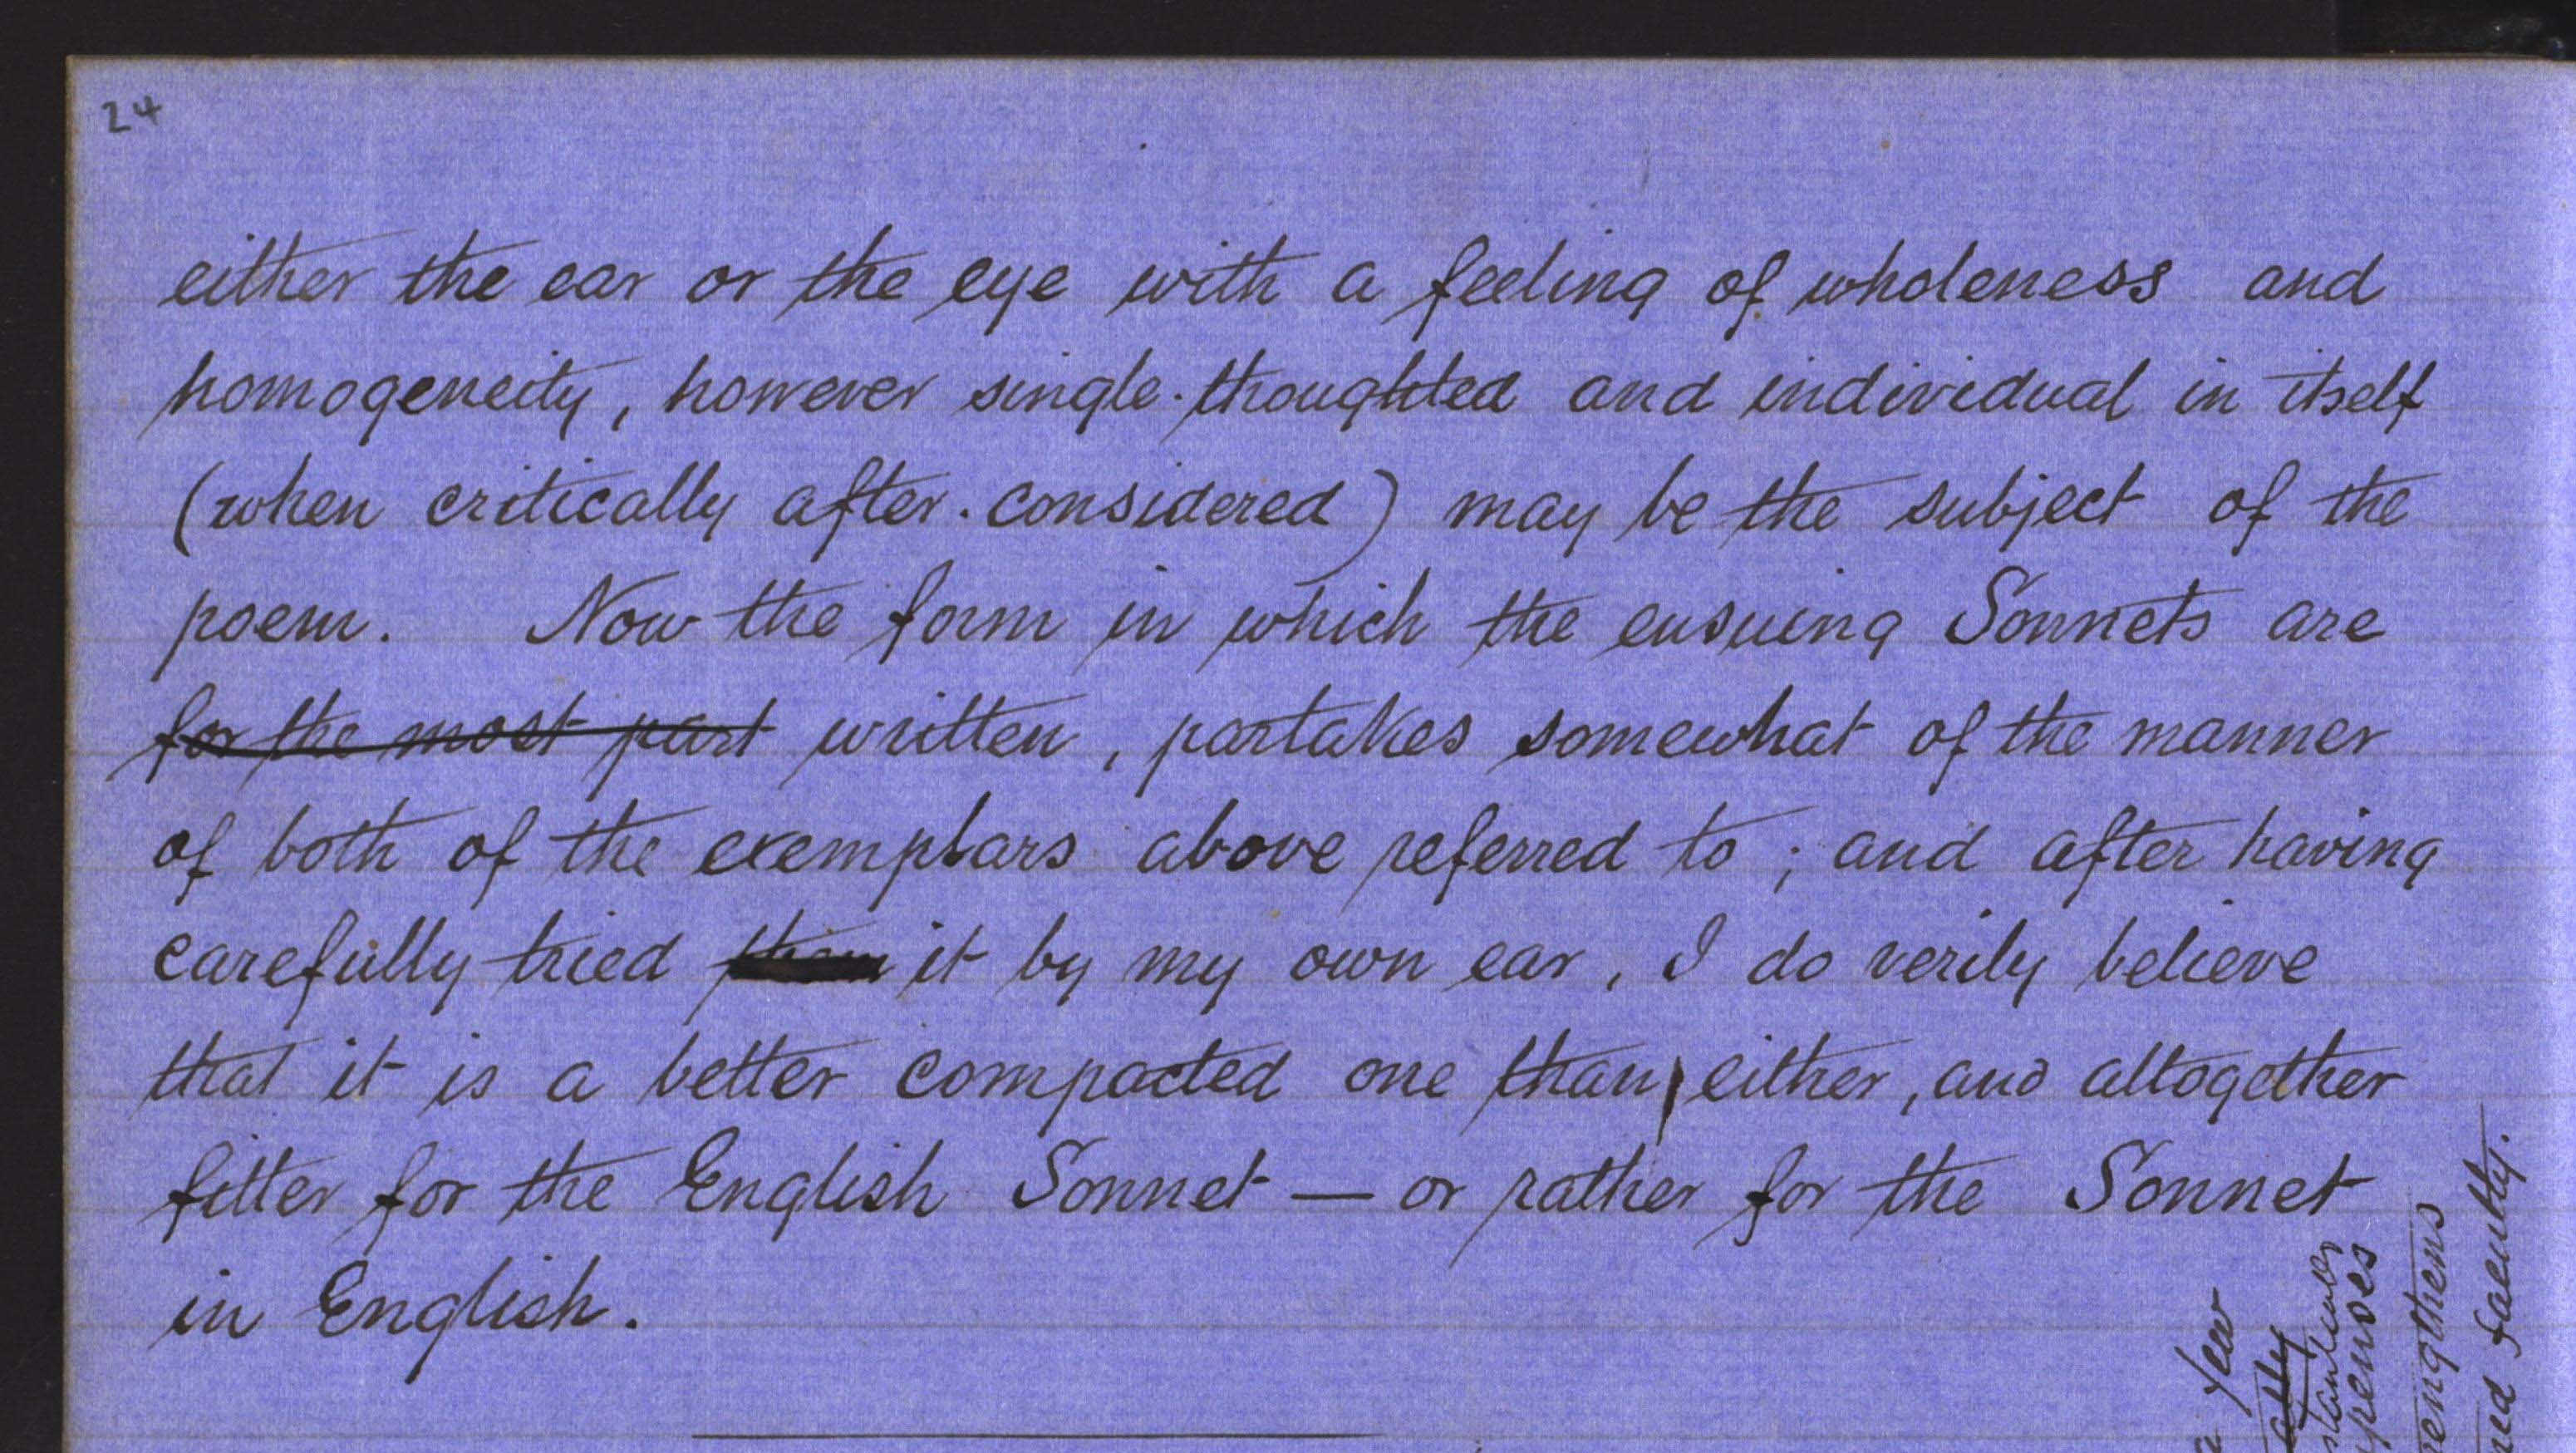 24
either the ear or the eye with a feeling of wholeness and
homogeneity, however single-thoughted and individual in itself
(when critically after-considered) may be the subject of the
poem. Now the form in which the ensuing Sonnets are
for the most part written, partakes somewhat of the manner
of both of the exemplars above referred to; and after having
carefully tried them it by my own ear, I do verily believe
that it is a better compacted one than either, and altogether
fitter for the English Sonnet — or rather for the Sonnet
in English.
a few